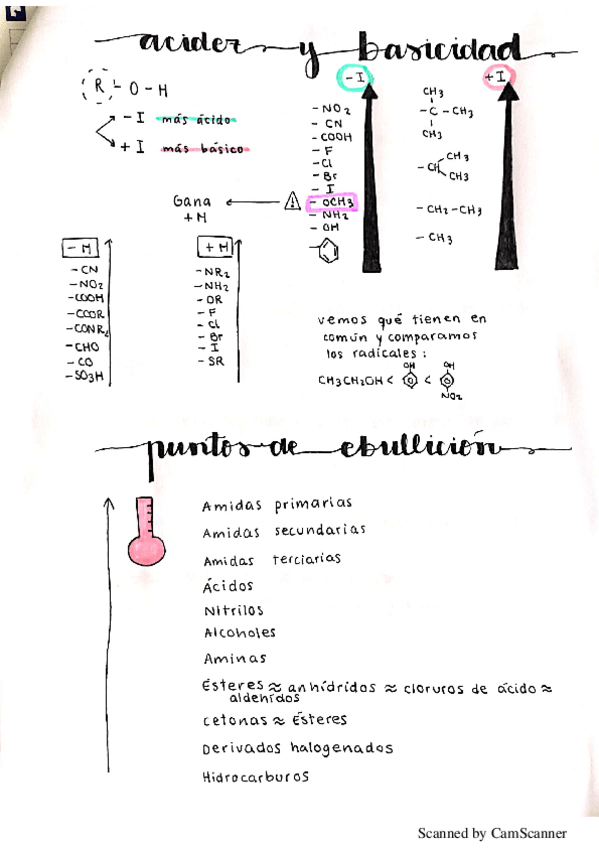 acidez y basicidad
R - O - H
- I más ácido
+ I más básico
- I
- NO2
- CN
- COOH
- F
- Cl
- Br
- I
- OCH3
- NH2
- OH
Gana
+ M
+ I
CH3
- C - CH3
CH3
- CH
CH3
CH3
- CH2 - CH3
- CH3
- M
- CN
- NO2
- COOH
- COOR
- CONR2
- CHO
- CO
- SO3H
+ M
- NR2
- NH2
- OR
- F
- Cl
- Br
- I
- SR
vemos qué tienen en
común y comparamos
los radicales :
OH OH
CH3CH2OH < <
NO2
puntos de ebullición
Amidas primarias
Amidas secundarias
Amidas terciarias
Ácidos
Nitrilos
Alcoholes
Aminas
Ésteres ≈ anhídridos ≈ cloruros de ácido ≈
aldehídos
cetonas ≈ Ésteres
Derivados halogenados
Hidrocarburos
Scanned by CamScanner